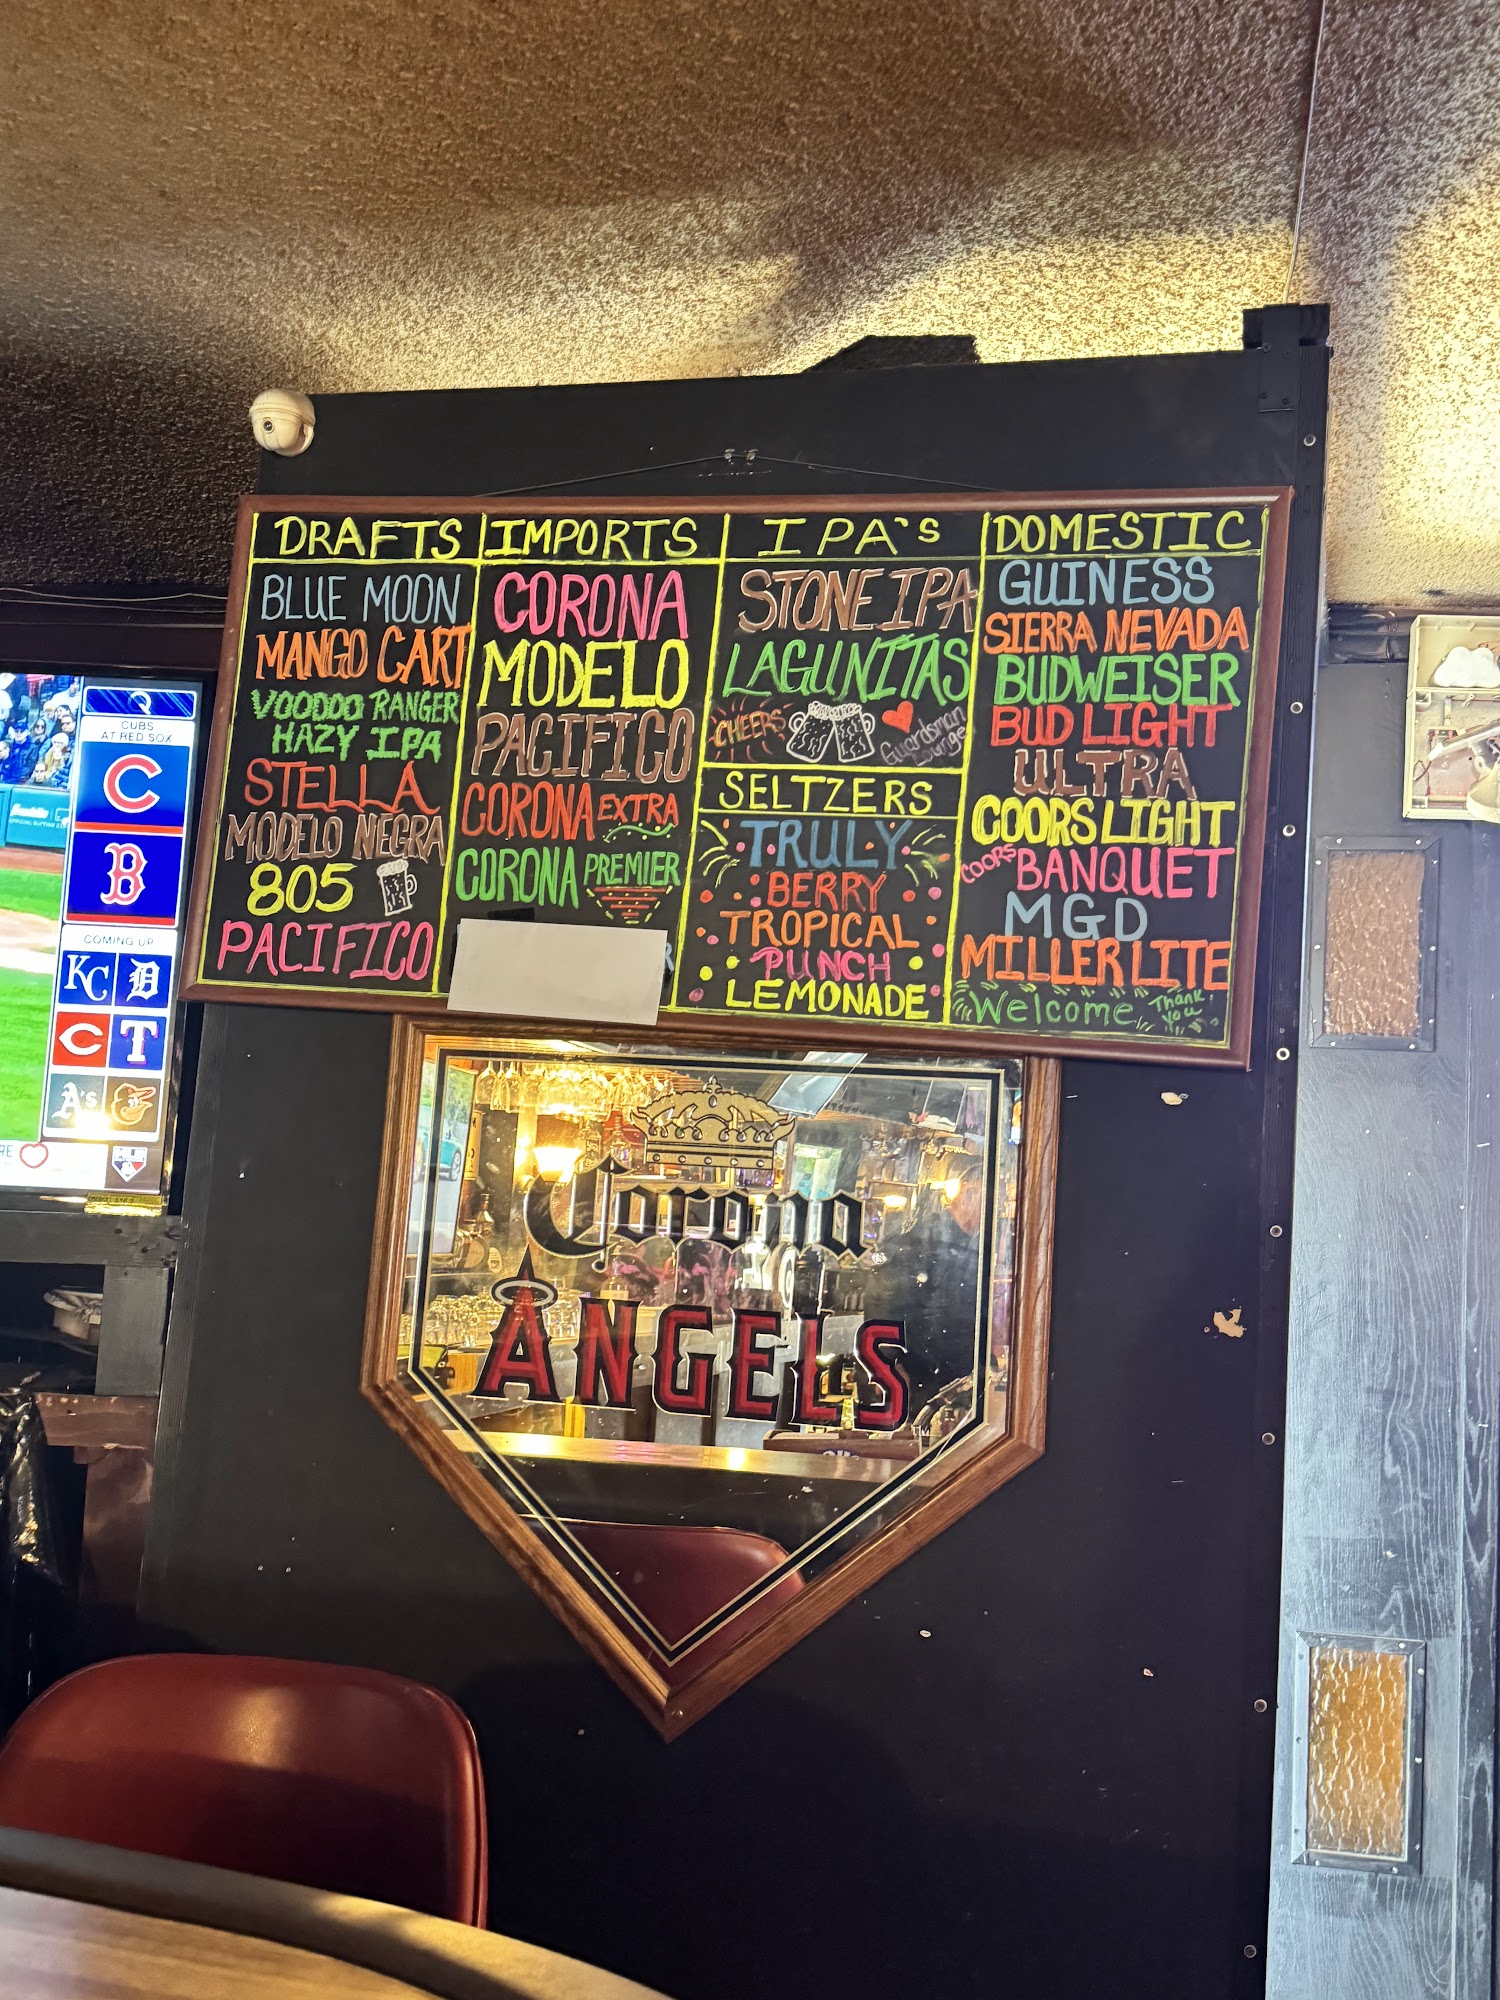 DRAFTS
BLUE MOON
MANGO CART
VOODOO RANGER
HAZY IPA
STELLA
MODELO NEGRA
805
PACIFICO
IMPORTS
CORONA
MODELO
PACIFICO
CORONA EXTRA
CORONA PREMIER
IPA's
STONE IPA
LAGUNITAS
CHEERS
Guardsman
Lounge
SELTZERS
TRULY
BERRY
TROPICAL
PUNCH
LEMONADE
DOMESTIC
GUINESS
SIERRA NEVADA
BUDWEISER
BUD LIGHT
ULTRA
COORS LIGHT
COORS BANQUET
MGD
MILLER LITE
Welcome
Thank
You
CUBS
AT RED SOX
C
B
COMING UP
KC D
C T
A's
Corona
ANGELS